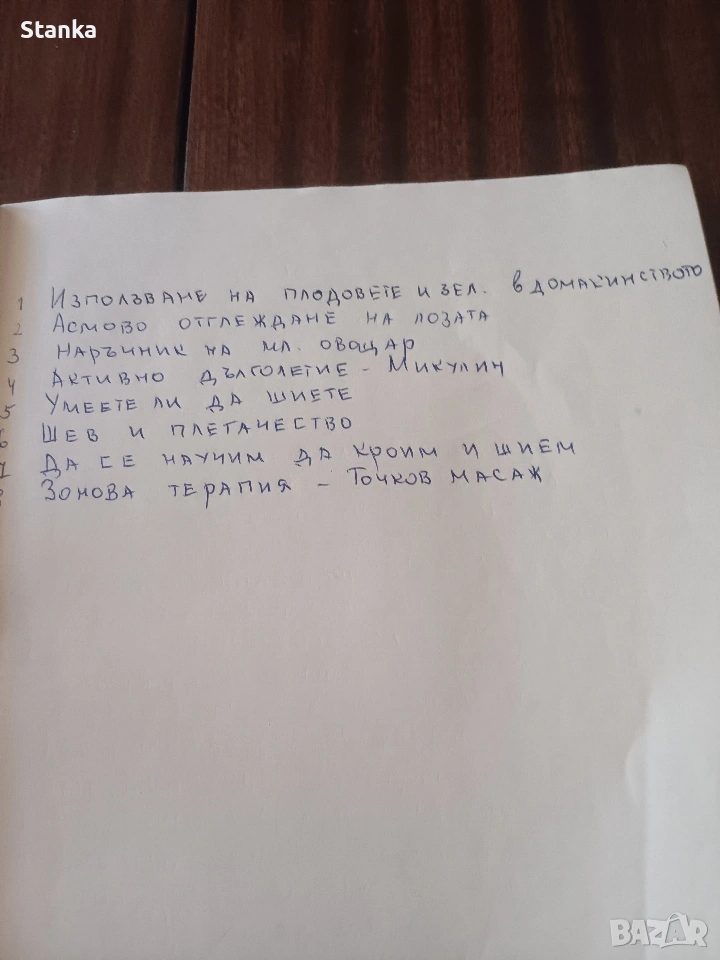 Stanka
1 Използване на плодовете и зел. в домакинството
2 Асмово отглеждане на лозата
3 Наръчник на мл. овощар
4 Активно дълголетие - Микулин
5 Умеете ли да шиете
6 Шев и плетачество
7 Да се научим да кроим и шием
Зонова терапия - Точков масаж
BAZAR